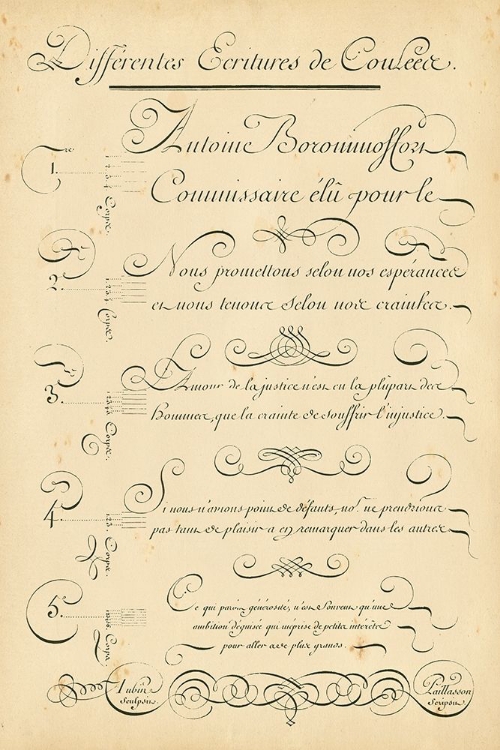 Différentes Ecritures de Coulées.
1.re
Corps.
Antoine
Commissaire élû pour le
2.e
Corps.
Nous promettons selon nos espérances
et nous tenons selon nos craintes.
3.e
Corps.
L'Amour de la justice n'est en la plûpart des
Hommes, que la crainte de souffrir l'injustice.
4.
Corps.
Si nous n'avions point de défauts, ns. ne prendrions
pas tant de plaisir a en remarquer dans les autres
5.e
Corps.
Ce qui paroit générosité, n'est souvent qu'une
ambition déguisée qui méprise de petits intérêts
pour aller a de plus grands.
Aubin
Sculpsit.
Paillasson
Scripsit.